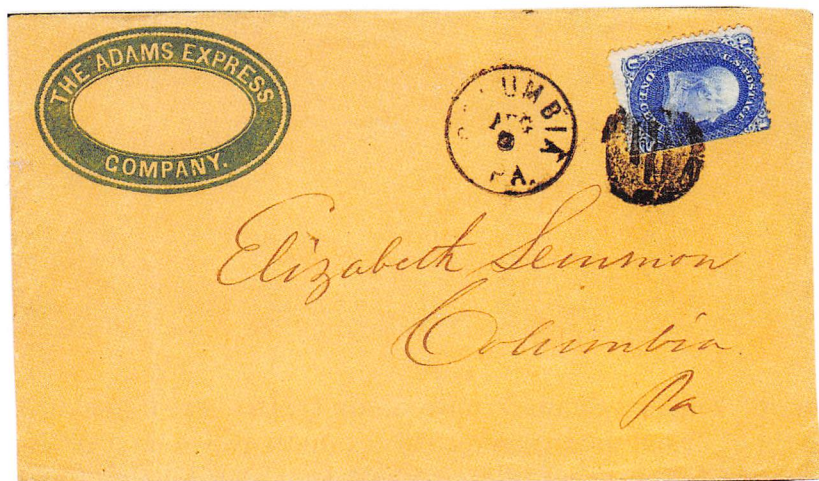 THE ADAMS EXPRESS
COMPANY.
COLUMBIA
AUG
PA.
U.S. POSTAGE
Elizabeth Semmon
Columbia
Pa